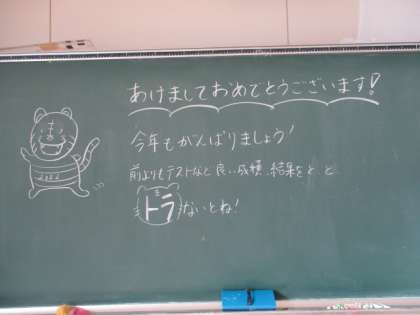 あけましておめでとうございます!
今年もがんばりましょう!
前よりもテストなど良い成績、結果をと と
トラないとね!